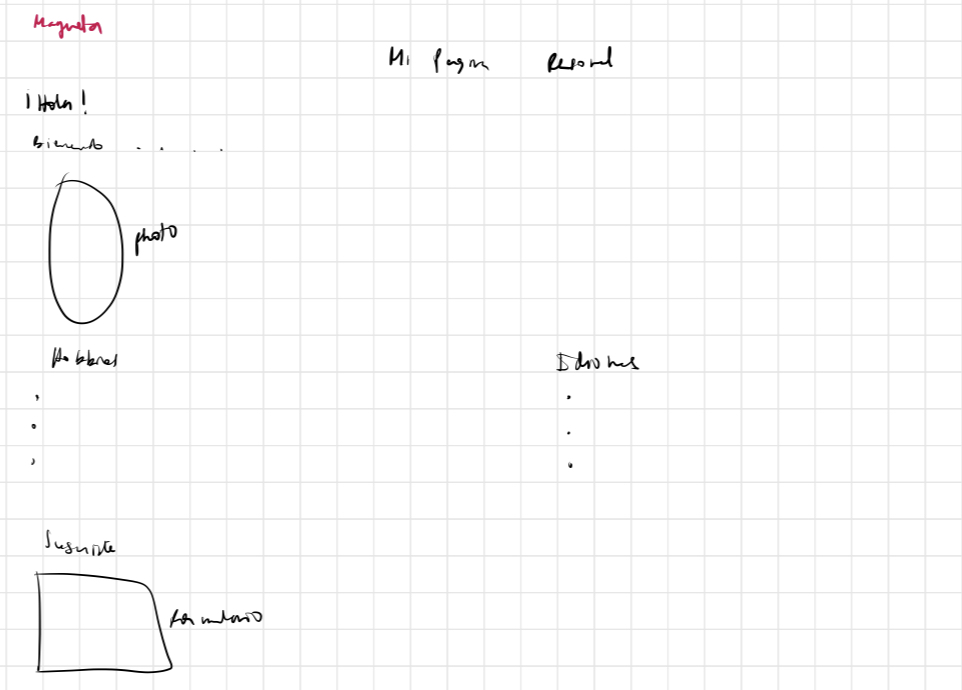 Maqueta
Mi Pagina Personal
¡Hola!
Bienvenido . . . .
photo
Hobbies
Idiomas
Suscribete
formulario